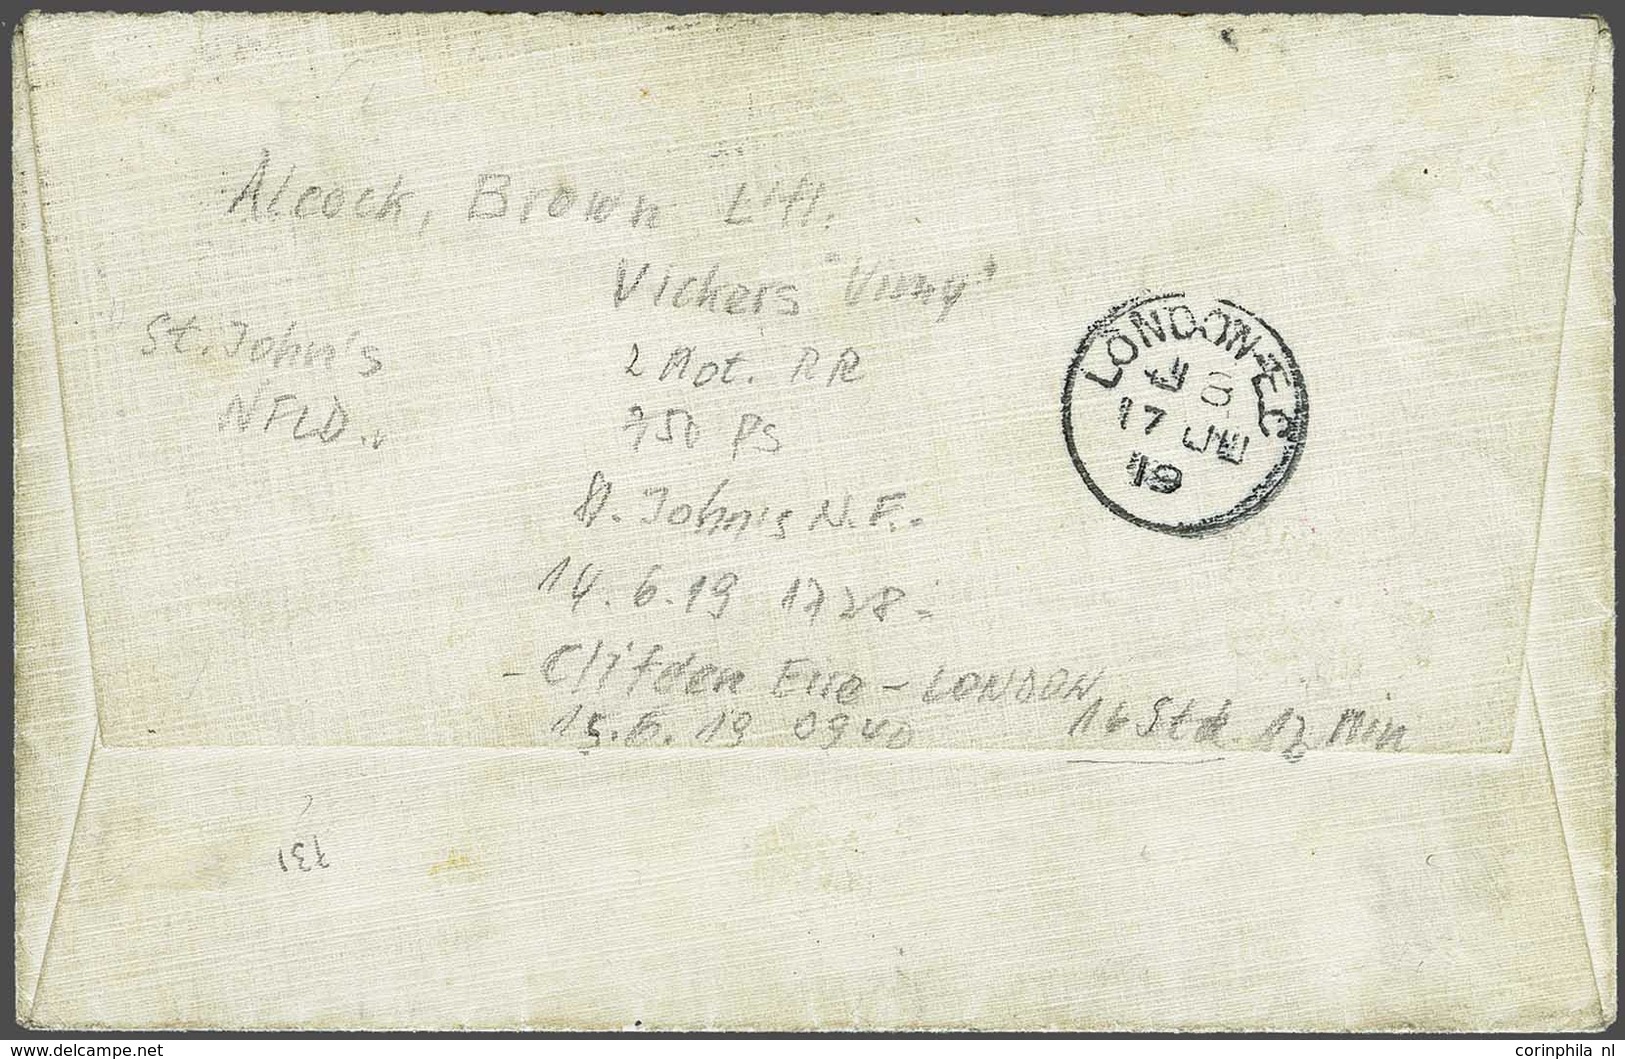 Alcock, Brown
Vickers "Vimy"
St. John's
NFLD.
2 Mot. RR
750 PS
St. John's N.F.
14.6.19 1728 -
- Clifden Eire - LONDON
15.6.19 0940 16 Std. 12 Min
LONDON · E.C
17 JE
19
731
delcampe.net
corinphila nl